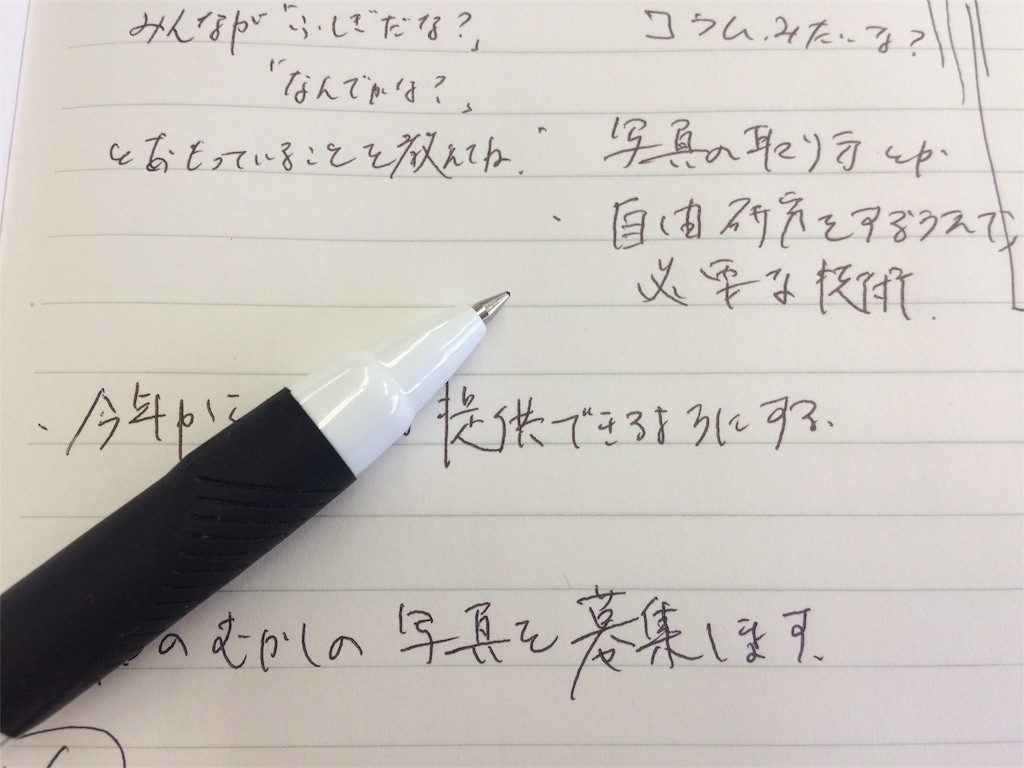 みんなが「ふしぎだな?」
「なんでかな?」
とおもっていることを教えてね。
コラムみたいな?
写真の取り方とか
・自由研究をするうえで、
必要な技術.
・今年か 提供できるようにする.
のむかしの写真を募集します.